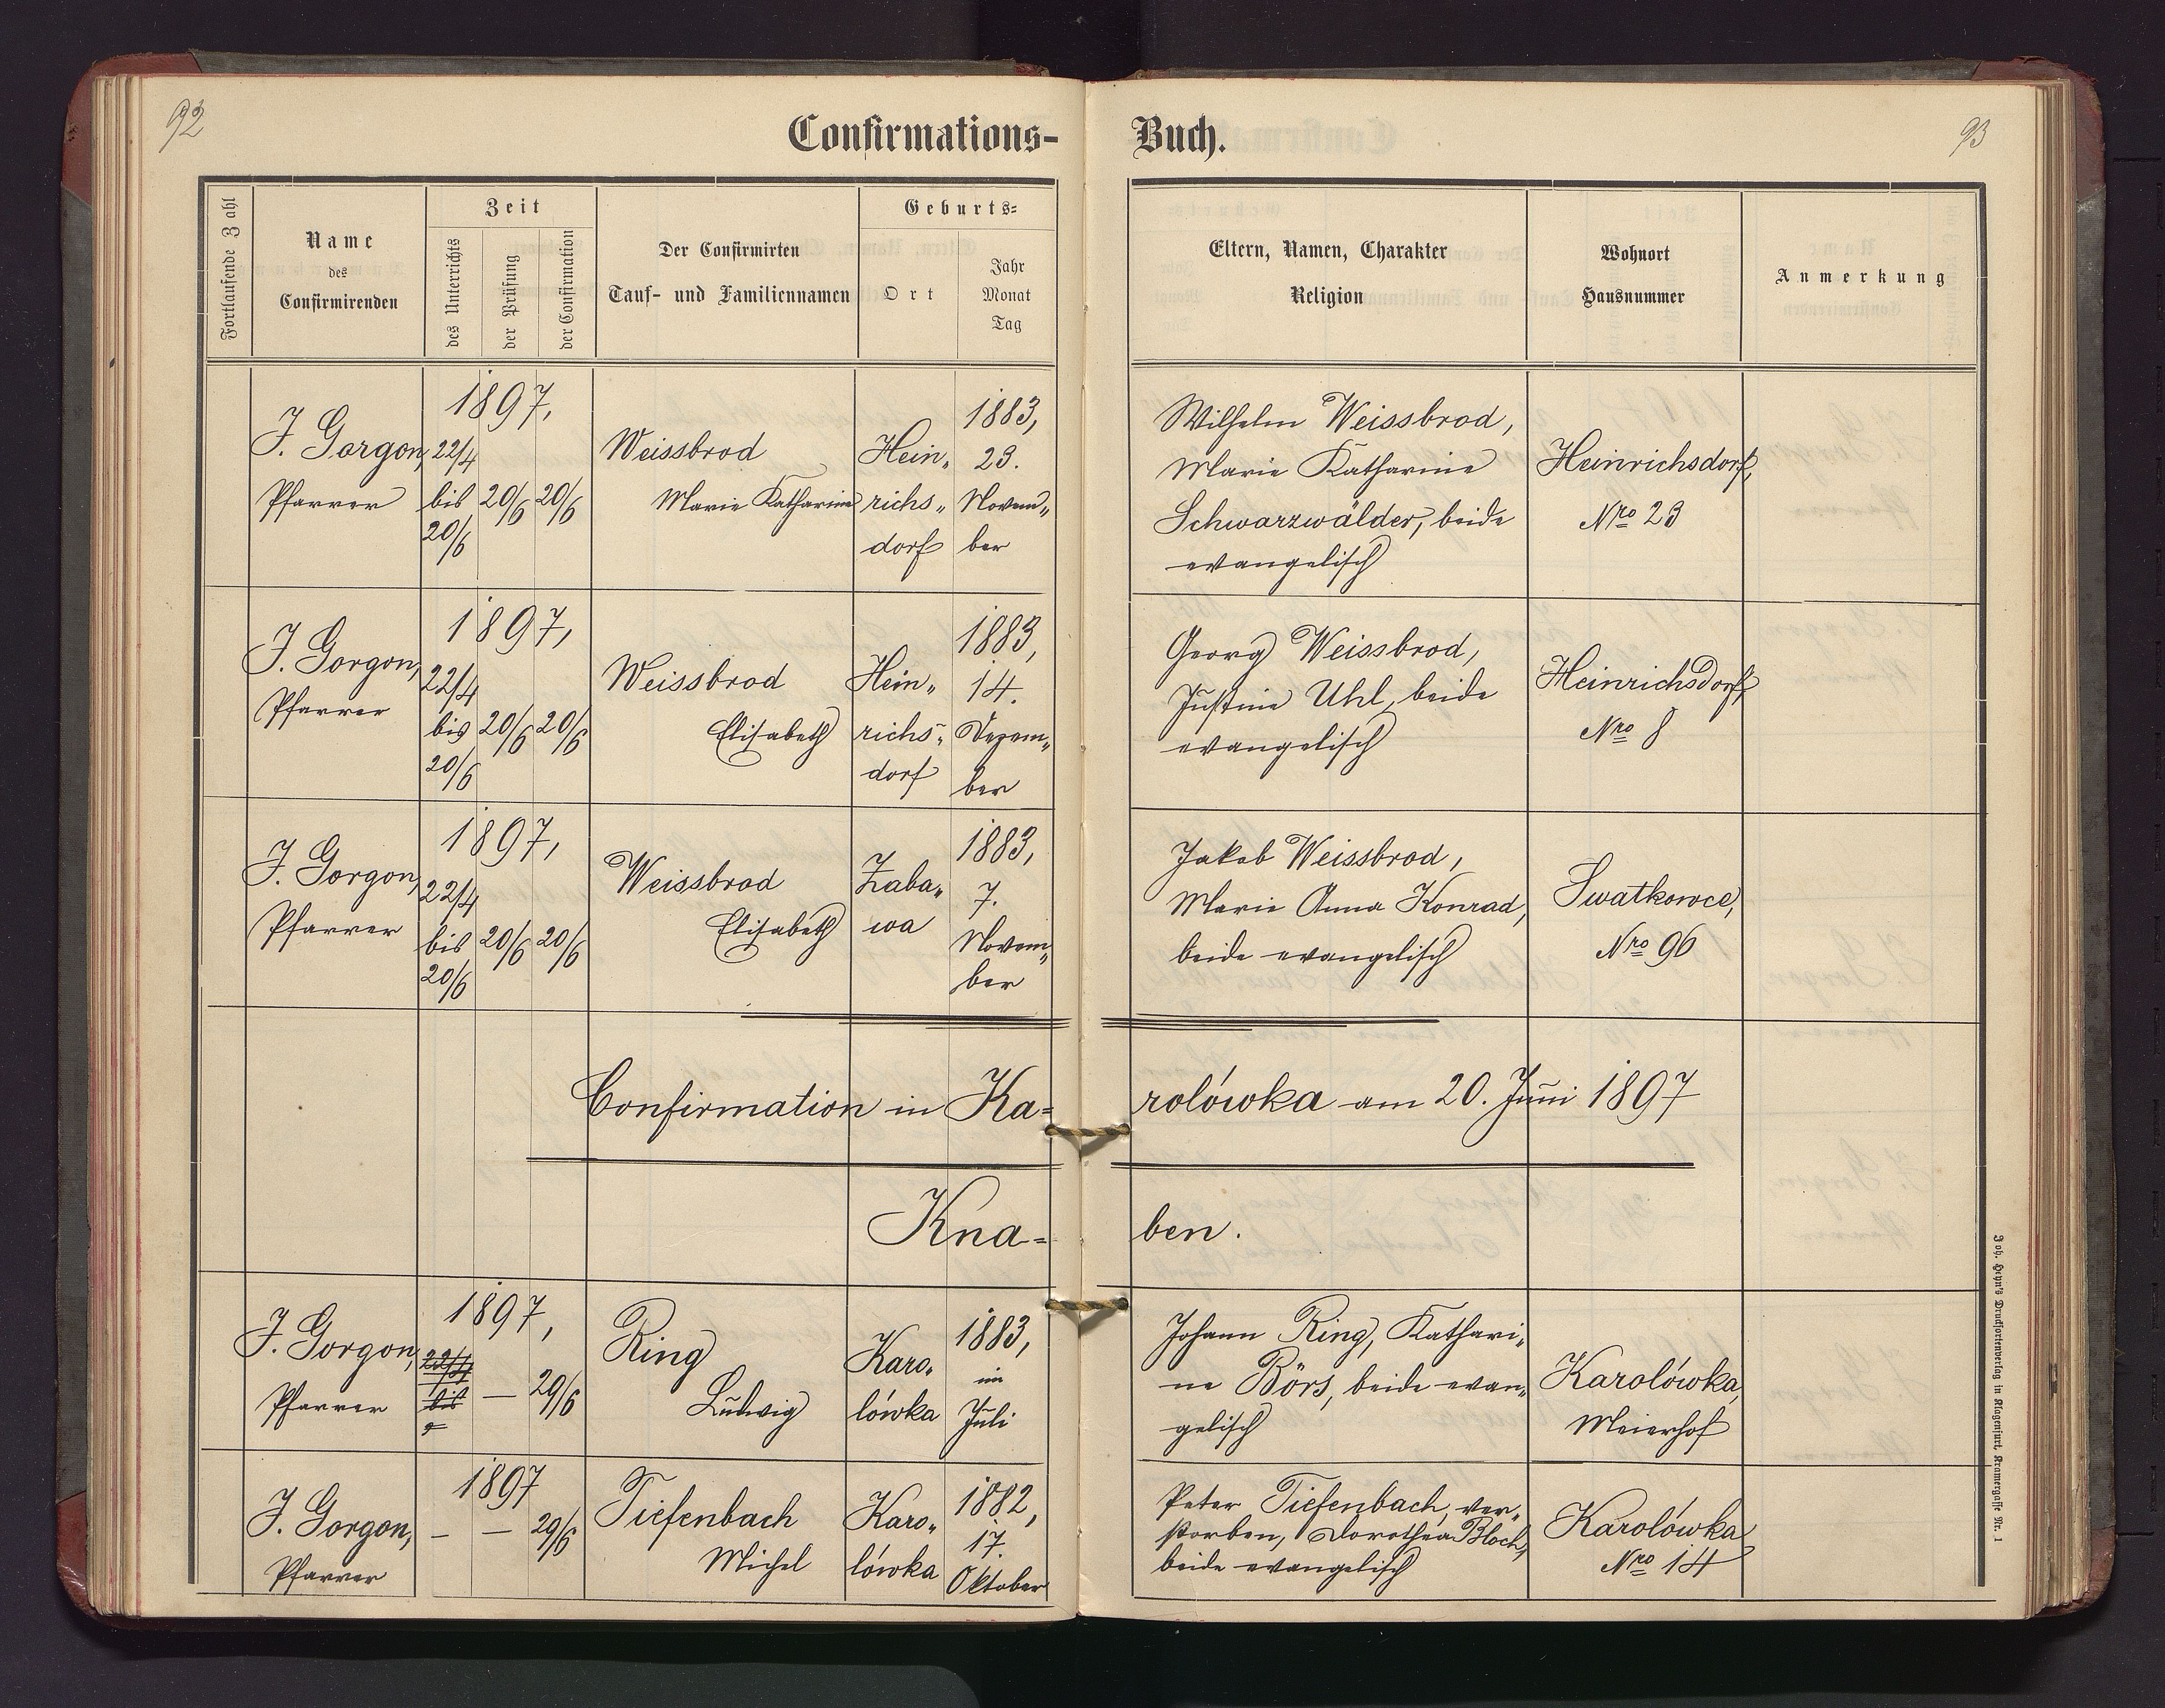 92
Confirmations-
Buch.
93
Fortlaufende Zahl
Name
des
Confirmirenden
Zeit
des Unterrichts
der Prüfung
der Confirmation
Der Confirmirten
Tauf- und Familiennamen
Geburts-
Ort
Jahr
Monat
Tag
Eltern, Namen, Charakter
Religion
Wohnort
Hausnummer
Anmerkung
J. Gorgon,
Pfarrer
1897,
22/4
bis
20/6
20/6
20/6
Weissbrod
Marie Katharine
Hein„
richs„
dorf
1883,
23.
Novem„
ber
Wilhelm Weissbrod,
Marie Katharine
Schwarzwälder, beide
evangelisch
Heinrichsdorf,
Nro 23
J. Gorgon,
Pfarrer
1897,
22/4
bis
20/6
20/6
20/6
Weissbrod
Elisabeth
Hein„
richs„
dorf
1883,
14.
Dezem„
ber
Georg Weissbrod,
Justine Uhl, beide
evangelisch
Heinrichsdorf,
Nro 8
J. Gorgon,
Pfarrer
1897,
22/4
bis
20/6
20/6
20/6
Weissbrod
Elisabeth
Zaba„
wa
1883,
7.
Novem„
ber
Jakob Weissbrod,
Marie Anna Konrad,
beide evangelisch
Swatkowce,
Nro 96
Confirmation in Ka=
rolówka am 20. Juni 1897
Kna=
ben.
J. Gorgon,
Pfarrer
1897,
22/4
bis
—
29/6
Ring
Ludwig
Karo„
lówka
1883,
im
Juli
Johann Ring, Kathari„
ne Börs, beide evan„
gelisch
Karolówka,
Meierhof
J. Gorgon,
Pfarrer
1897
—
—
29/6
Tiefenbach
Michel
Karo„
lówka
1882,
17.
Oktober
Peter Tiefenbach, ver„
storben, Dorothea Bloch,
beide evangelisch
Karolówka
Nro 14
Joh. Heyn's Drucksortenverlag in Klagenfurt, Kramergasse Nr. 1